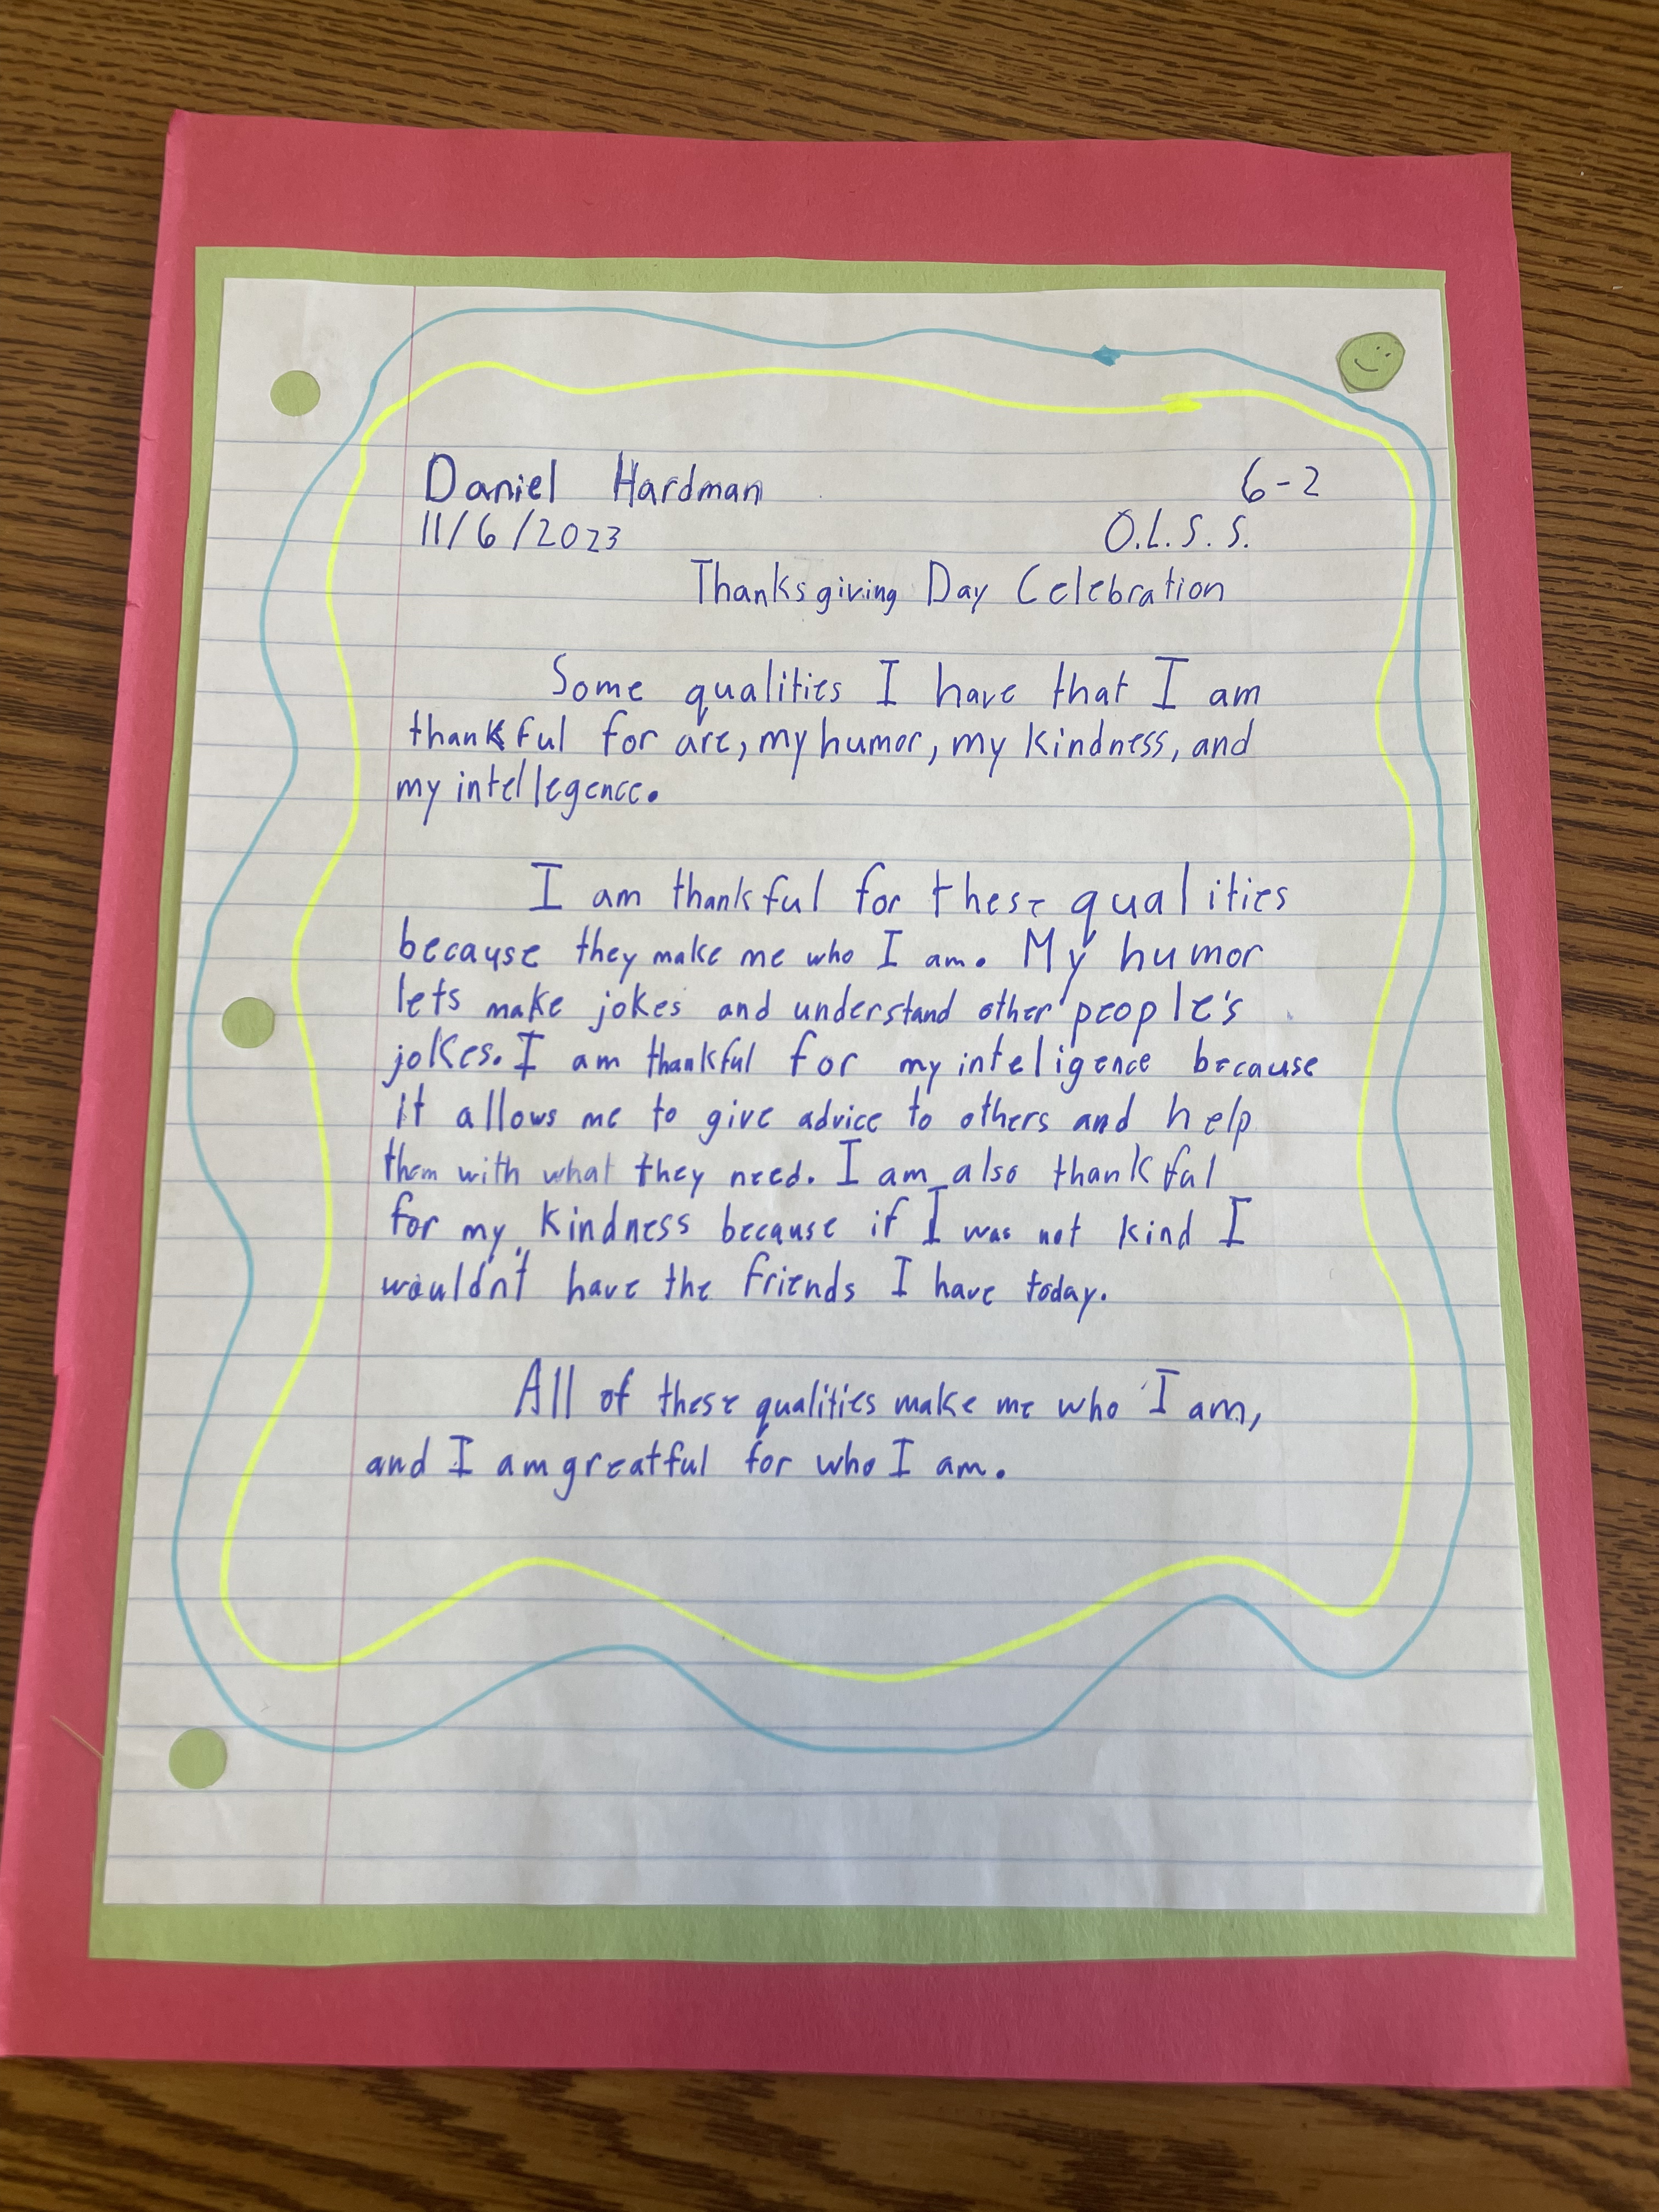 Daniel Hardman 6-2
11/6/2023 O.L.S.S.
Thanksgiving Day Celebration
Some qualities I have that I am
thankful for are, my humor, my kindness, and
my intellegence.
I am thankful for these qualities
because they make me who I am. My humor
lets make jokes and understand other people's
jokes. I am thankful for my inteligence because
it allows me to give advice to others and help
them with what they need. I am also thankful
for my kindness because if I was not kind I
wouldn't have the friends I have today.
All of these qualities make me who I am,
and I am greatful for who I am.